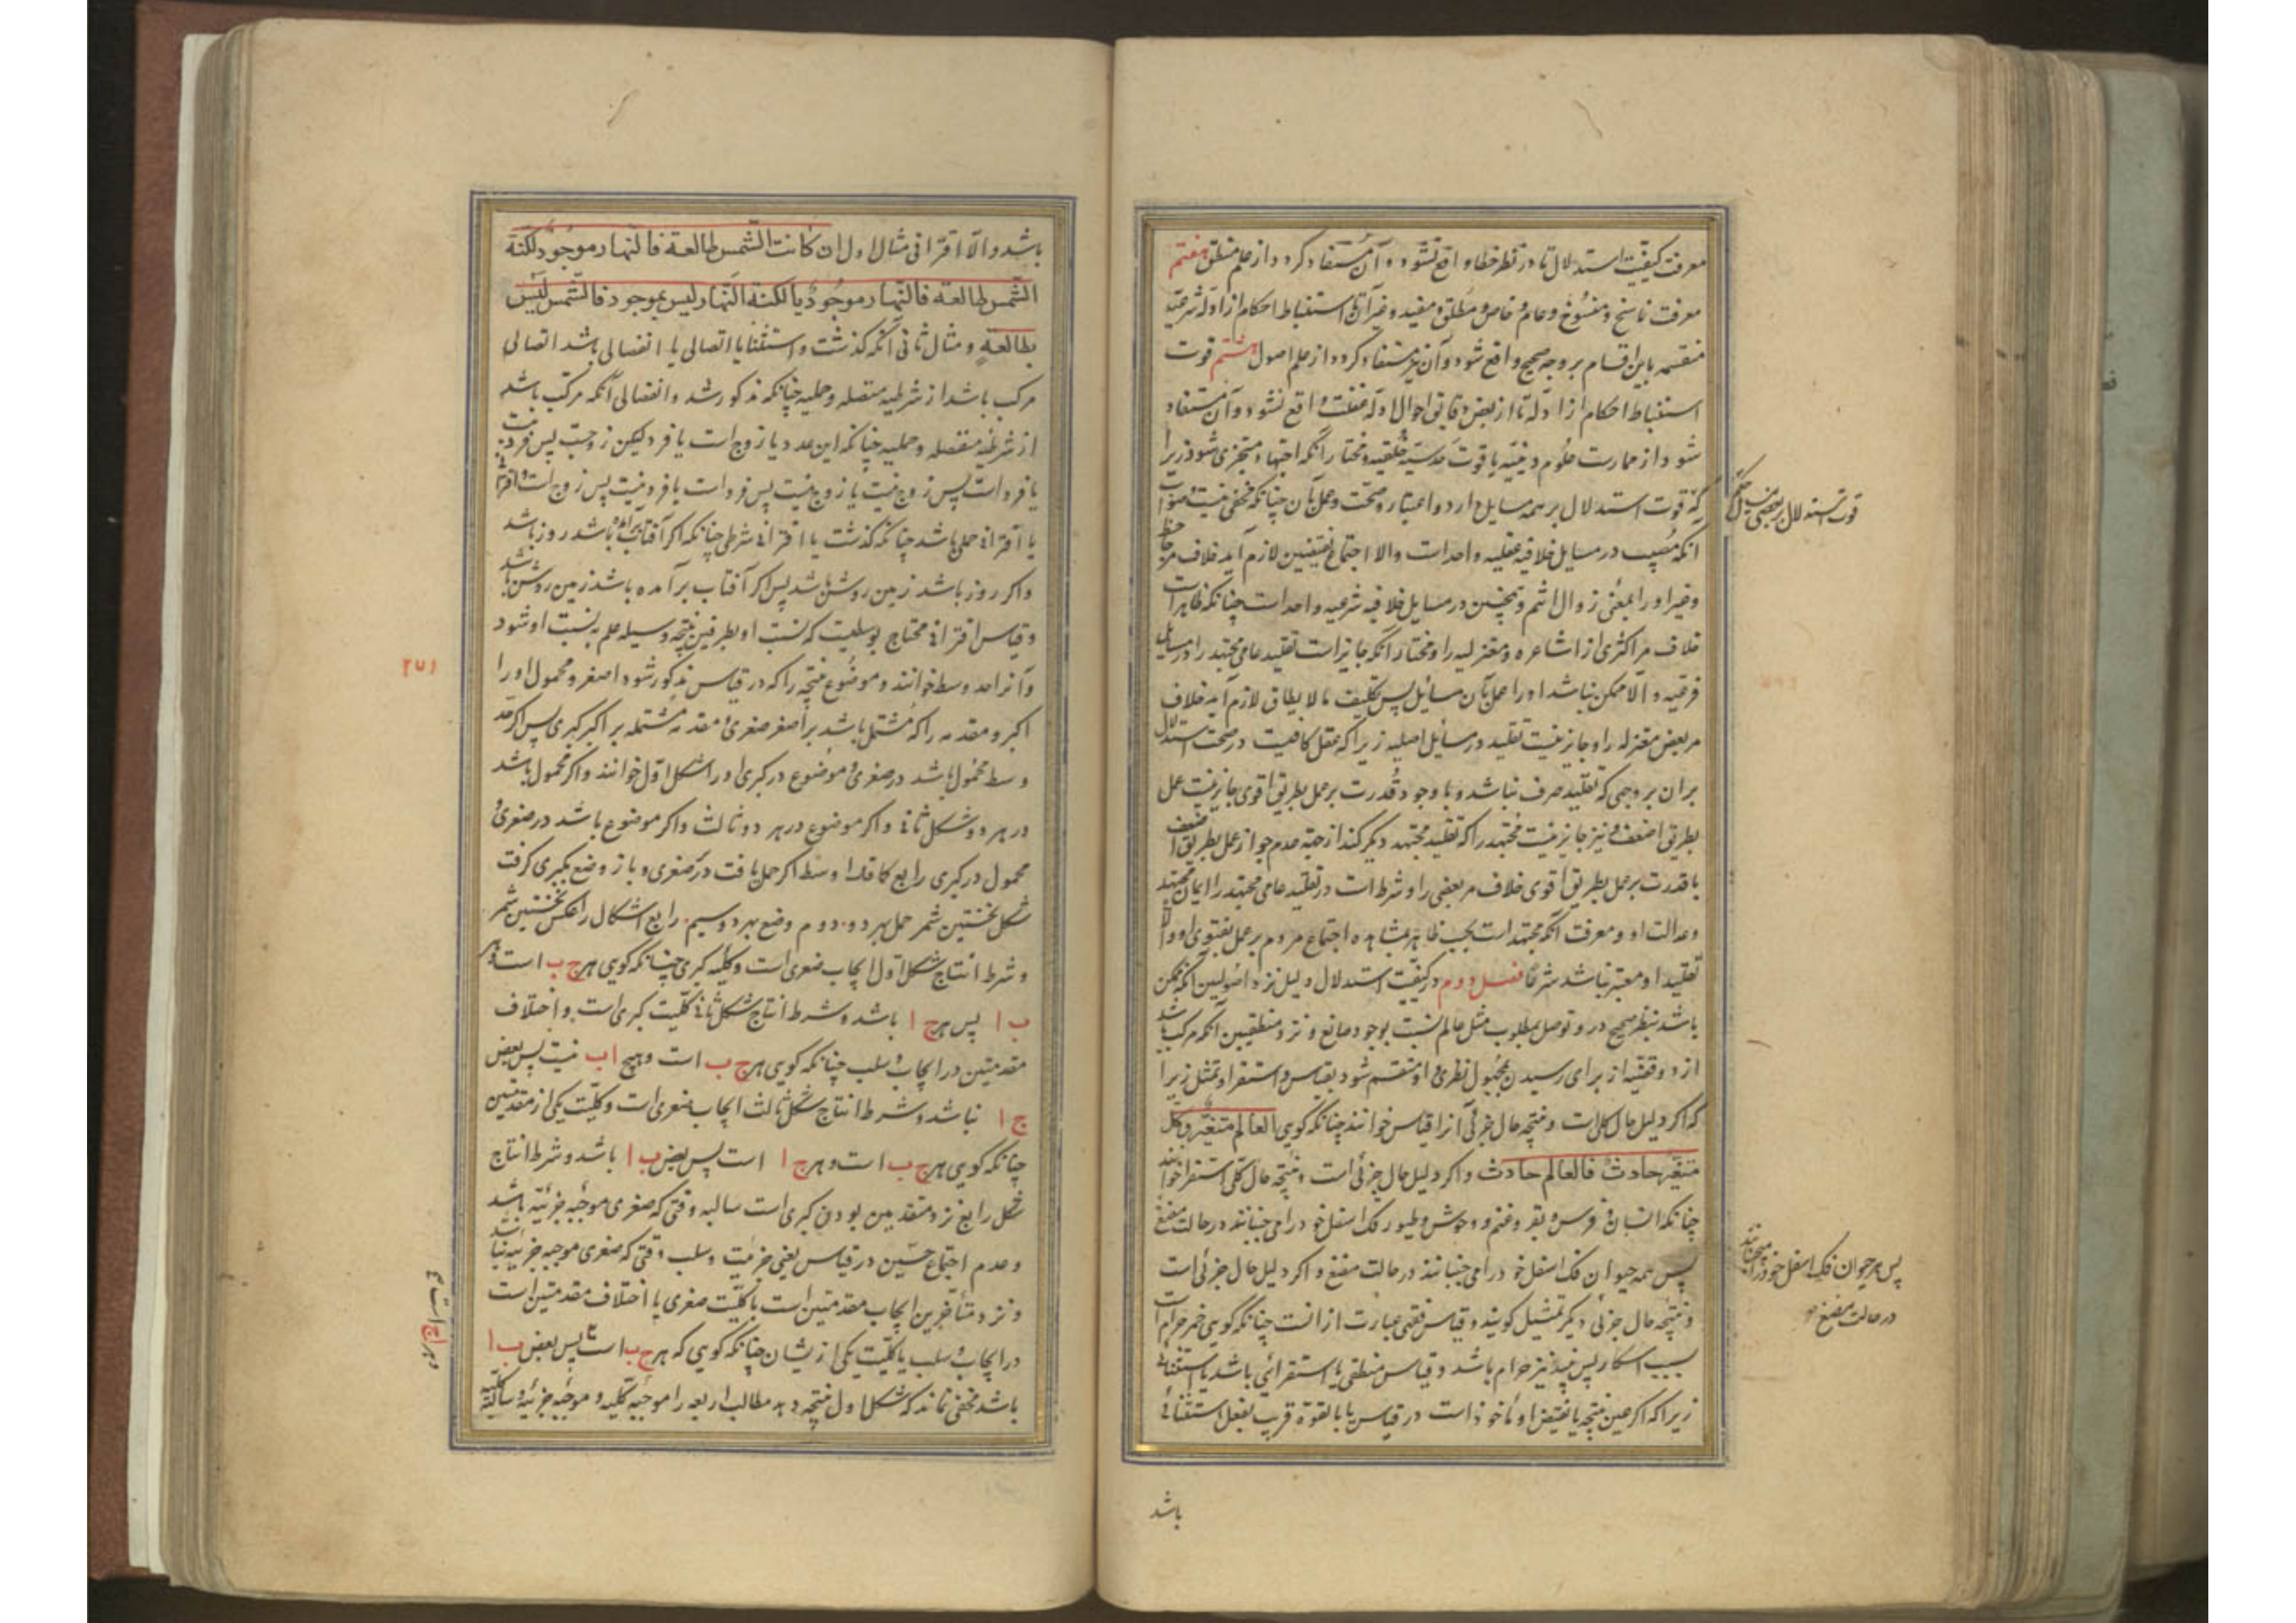 معرفت کیفیت استدلال تا در نظر خطا واقع نشود و آن مستفاد کردد از علم منطق هفتم
معرفت ناسخ و منسوخ و عام و خاص و مطلق و مقید و غیر آن تا استنباط احکام از ادله شرعیه
منقسمه باین اقسام بر وجه صحیح واقع شود و آن نیز مستفاد کردد از علم اصول هشتم قوت
استنباط احکام از ادله تا از بعض دقایق احوال ادله غفلت واقع نشود و آن مستفاد
شود از ممارست علوم دینیه با قوت حدسیه خلقیه و مختار آنکه اجتهاد متجزی شود زیرا
که قوت استدلال بر همه مسایل دارد و اعتبار و صحت و عمل بآن چنانکه مخفی نیست و صواب
قوت استدلال بر بعضی مسایل
آنکه مصیب در مسایل خلافیه عقلیه واحدات والا اجتماع نقیضین لازم آید خلاف مر جاحظ
وغیر او را بمعنی زوال اثم و همچنین در مسایل خلافیه شرعیه واحد است چنانکه ظاهر است
خلاف مر اکثری از اشاعره و معتزلیه را و مختار آنکه جایز است تقلید عامی مجتهد را در مسایل
فرعیه و الا ممکن نباشد او را عمل بآن مسائل پس تکلیف ما لا یطاق لازم آید خلاف
مر بعض معتزله را و جایز نیست تقلید در مسائل اصلیه زیرا که عقل کافیست در صحت استدلال
بران بر وجهی که تقلید صرف نباشد و با وجود قدرت بر عمل بطریق اقوی جایز نیست عمل
بطریق اضعف و نیز جایز نیست مجتهد را که تقلید مجتهد دیکر کند از جهة عدم جواز عمل بطریق اضعف
با قدرت بر عمل بطریق اقوی خلاف مر بعضی را و شرط است در تقلید عامی مجتهد را ایمان مجتهد
و عدالت او و معرفت آنکه مجتهد است بحسب ظاهر بمشاهده اجتماع مردم بر عمل بفتوی او و الا
تقلید او معتبر نباشد شرعا فصل دوم در کیفیت استدلال دلیل نزد اصولیین آنکه ممکن
باشد بنظر صحیح در و توصل بمطلوب مثل عالم نسبت بوجود صانع و نزد منطقیین آنکه مرکب باشد
از دو قضیه از برای رسیدن بمجهول نظری و او منقسم شود بقیاس و استقرا و تمثل زیرا
که اکر دلیل حال کلی است و نتیجه حال جزئی آنرا قیاس خوانند چنانکه کویی العالم متغیر و کل
متغیر حادث فالعالم حادث و اکر دلیل حال جزئی است و نتیجه حال کلی استقرا خوانند
چنانکه انسان و فرس و بقر و غنم و وحوش و طیور فک اسفل خود را می جنبانند در حالت مضغ
پس همه حیوان فک اسفل خود را می جنبانند در حالت مضغ و اکر دلیل حال جزئی است
پس هر حیوان فک اسفل خود را می جنبانند
در حالت مضغ
و نتیجه حال جزئی دیکر تمثیل کویند و قیاس فقهی عبارت از انست چنانکه کویی خمر حرام است
بسبب اسکار پس نبیذ نیز حرام باشد و قیاس منطقی یا استقرائی باشد یا استثنائی
زیرا که اکر عین نتیجه یا نقیض او ماخوذ است در قیاس یا بالقوة قریب بفعل استثنائی
باشد
باشد و الا اقترانی مثال اول ان کانت الشمس طالعة فالنهار موجود لکنة
الشمس طالعه فالنهار موجود یا لکنة النهار لیس بموجود فالشمس لیس
بطالعة و مثال ثانی آنکه کذشت و استثنا یا اتصالی یا انفصالی باشد اتصالی
مرکب باشد از شرطیه متصله و حملیه چنانکه مذکور شد و انفصالی آنکه مرکب باشد
از شرطیه منفصله و حملیه چنانکه این عدد یا زوج است یا فرد لیکن زوجست پس فرد نیست
یا فرد است پس زوج نیست یا زوج نیست پس فرد است یا فرد نیست پس زوج است و اقترانی
یا اقترانی حملی باشد چنانکه کذشت یا اقترانی شرطی چنانکه اکر آفتاب برآمده باشد روز باشد
و اکر روز باشد زمین روشن باشد پس اکر آفتاب برآمده باشد زمین روشن باشد
و قیاس اقترانی محتاج بوسطیست که نسبت او بطرفین نتیجه وسیله علم به نسبت او شود
۲۵۱
و آنرا حد وسط خوانند و موضوع نتیجه را که در قیاس مذکور شود اصغر و محمول او را
اکبر و مقدمه را که مشتمل باشد بر اصغر صغری و مقدمه مشتمله بر اکبر کبری پس اکر حد
وسط محمول باشد در صغری و موضوع در کبری او را شکل اول خوانند و اکر محمول باشد
در هر دو شکل ثانی و اکر موضوع در هر دو ثالث و اکر موضوع باشد در صغری و
محمول در کبری رابع کا قدا اوسط اکر حمل یافت در صغری و باز وضع بکبری کرفت
شکل نخستین شمر حمل بهر دو دوم وضع بهر دو سیم رابع اشکال را عکس نخستین شمر
و شرط انتاج شکل اول ایجاب صغری است و کلیه کبری چنانکه کویی هر ج ب است و هر
ب ا پس هر ج ا باشد و شرط انتاج شکل ثانی کلیت کبری است و اختلاف
مقدمتین در ایجاب و سلب چنانکه کویی هر ج ب است و هیچ ا ب نیست پس بعض
ج ا نباشد و شرط انتاج شکل ثالث ایجاب صغری است و کلیت یکی از مقدمتین
چنانکه کویی هر ج ب است و هر ج ا است پس بعض ب ا باشد و شرط انتاج
شکل رابع نزد متقدمین بودن کبری است سالبه وقتی که صغری موجبه جزئیه باشد
و عدم اجتماع خستین در قیاس یعنی جزئیت و سلب وقتی که صغری موجبه جزئیه نباشد
و نزد متأخرین ایجاب مقدمتین است با کلیت صغری یا اختلاف مقدمتین است
در ایجاب و سلب با کلیت یکی از یشان چنانکه کویی که هر ج ب است پس بعض ب ا
و هر ا ج است
باشد مخفی نماند که شکل اول نتیجه دهد مطالب اربعه را موجبه کلیه و موجبه جزئیه و سالبه کلیه